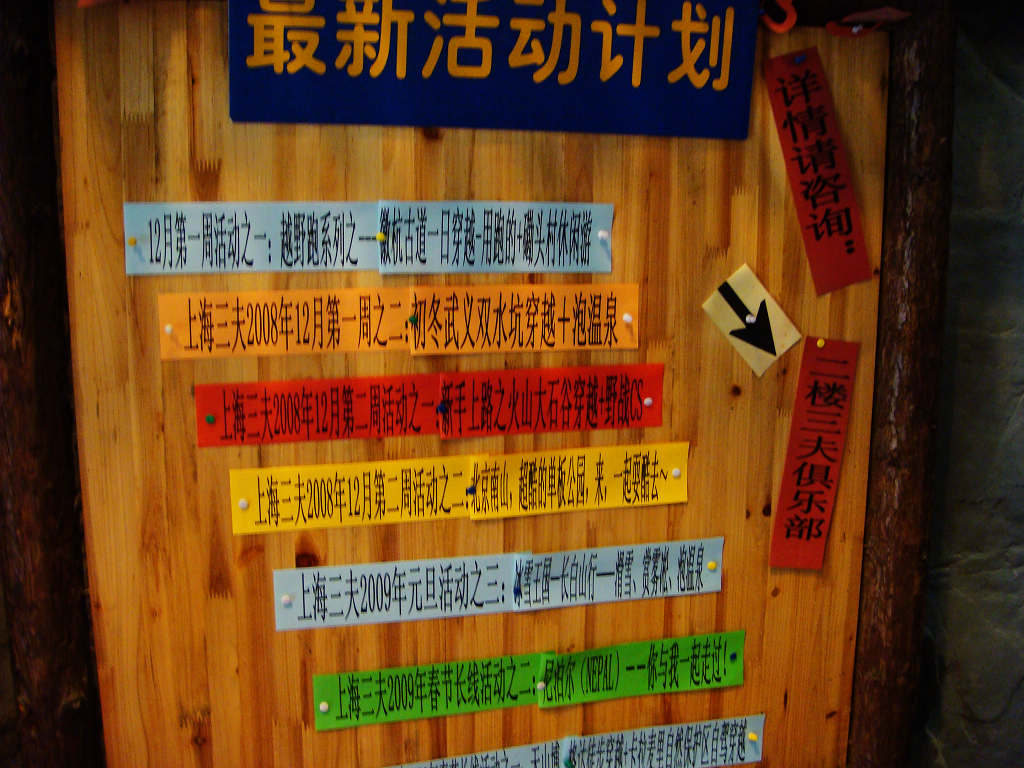 最新活动计划
详情请咨询：
12月第一周活动之一：越野跑系列之一徽杭古道一日穿越-用跑的+磡头村休闲游
上海三夫2008年12月第一周之二：初冬武义双水坑穿越＋泡温泉
上海三夫2008年12月第二周活动之一：新手上路之火山大石谷穿越+野战CS
上海三夫2008年12月第二周活动之二：北京南山，超酷的单板公园，来，一起耍酷去~
二楼三夫俱乐部
上海三夫2009年元旦活动之三：雪王国—长白山行—滑雪、赏雾凇、泡温泉
上海三夫2009年春节长线活动之二：尼泊尔（NEPAL）——你与我一起走过！
徒步穿越+卡拉麦里自然保护区自驾穿越